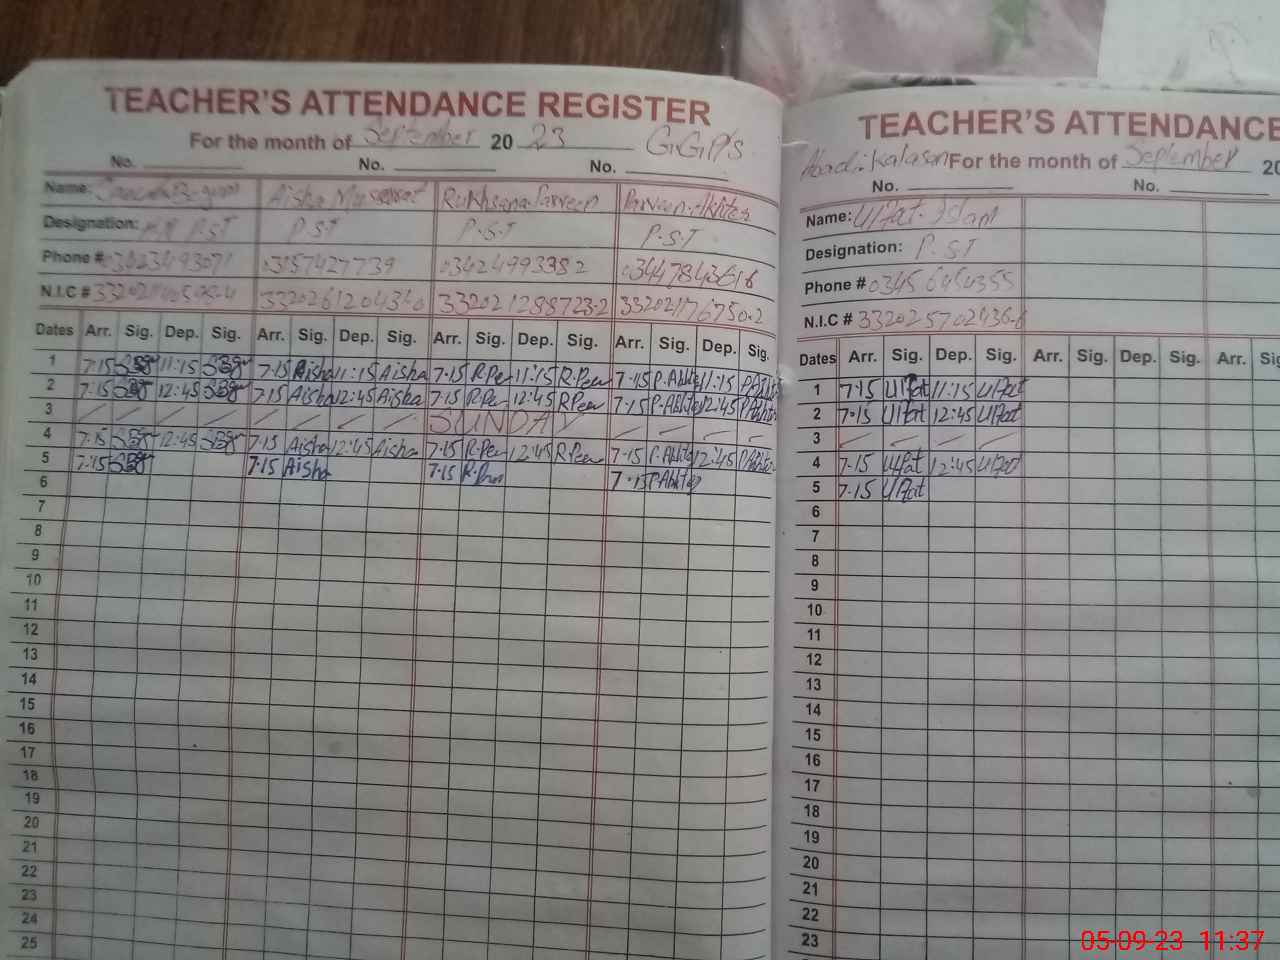 TEACHER'S ATTENDANCE REGISTER
For the month of September 20 23 G.G.P/s
No. No. No.
Name: Begum Aisha Musarrat Rukhsana Parveen Parveen Akhter
Designation: P.S.T P.S.T P.S.T P.S.T
Phone # 03157427739 03424993382
N.I.C #
Dates Arr. Sig. Dep. Sig. Arr. Sig. Dep. Sig. Arr. Sig. Dep. Sig. Arr. Sig. Dep. Sig.
1 7-15 11:15 7-15 Aisha 11:15 Aisha 7-15 R.Per 11:15 R.Peer 7-15 P.Akhter 11:15 P.Akhter
2 7-15 12:45 7-15 Aisha 12:45 Aisha 7-15 R.Per 12:45 R.Peer 7-15 P.Akhter 12:45 P.Akhter
3 SUNDAY
4 7-15 12:45 7-15 Aisha 12:45 Aisha 7-15 R.Per 12:45 R.Peer 7-15 P.Akhter 12:45 P.Akhter
5 7-15 7-15 Aisha 7-15 7-15 P.Akhter
6
7
8
9
10
11
12
13
14
15
16
17
18
19
20
21
22
23
24
25
TEACHER'S ATTENDANCE
Abadi Kalasan For the month of September 20
No. No.
Name: Ulfat Islam
Designation: P.S.T
Phone #
N.I.C #
Dates Arr. Sig. Dep. Sig. Arr. Sig. Dep. Sig. Arr. Sig
1 7-15 Ulfat 11:15 Ulfat
2 7-15 Ulfat 12:45 Ulfat
3
4 7-15 Ulfat 12:45 Ulfat
5 7-15 Ulfat
6
7
8
9
10
11
12
13
14
15
16
17
18
19
20
21
22
23
05-09-23 11:37